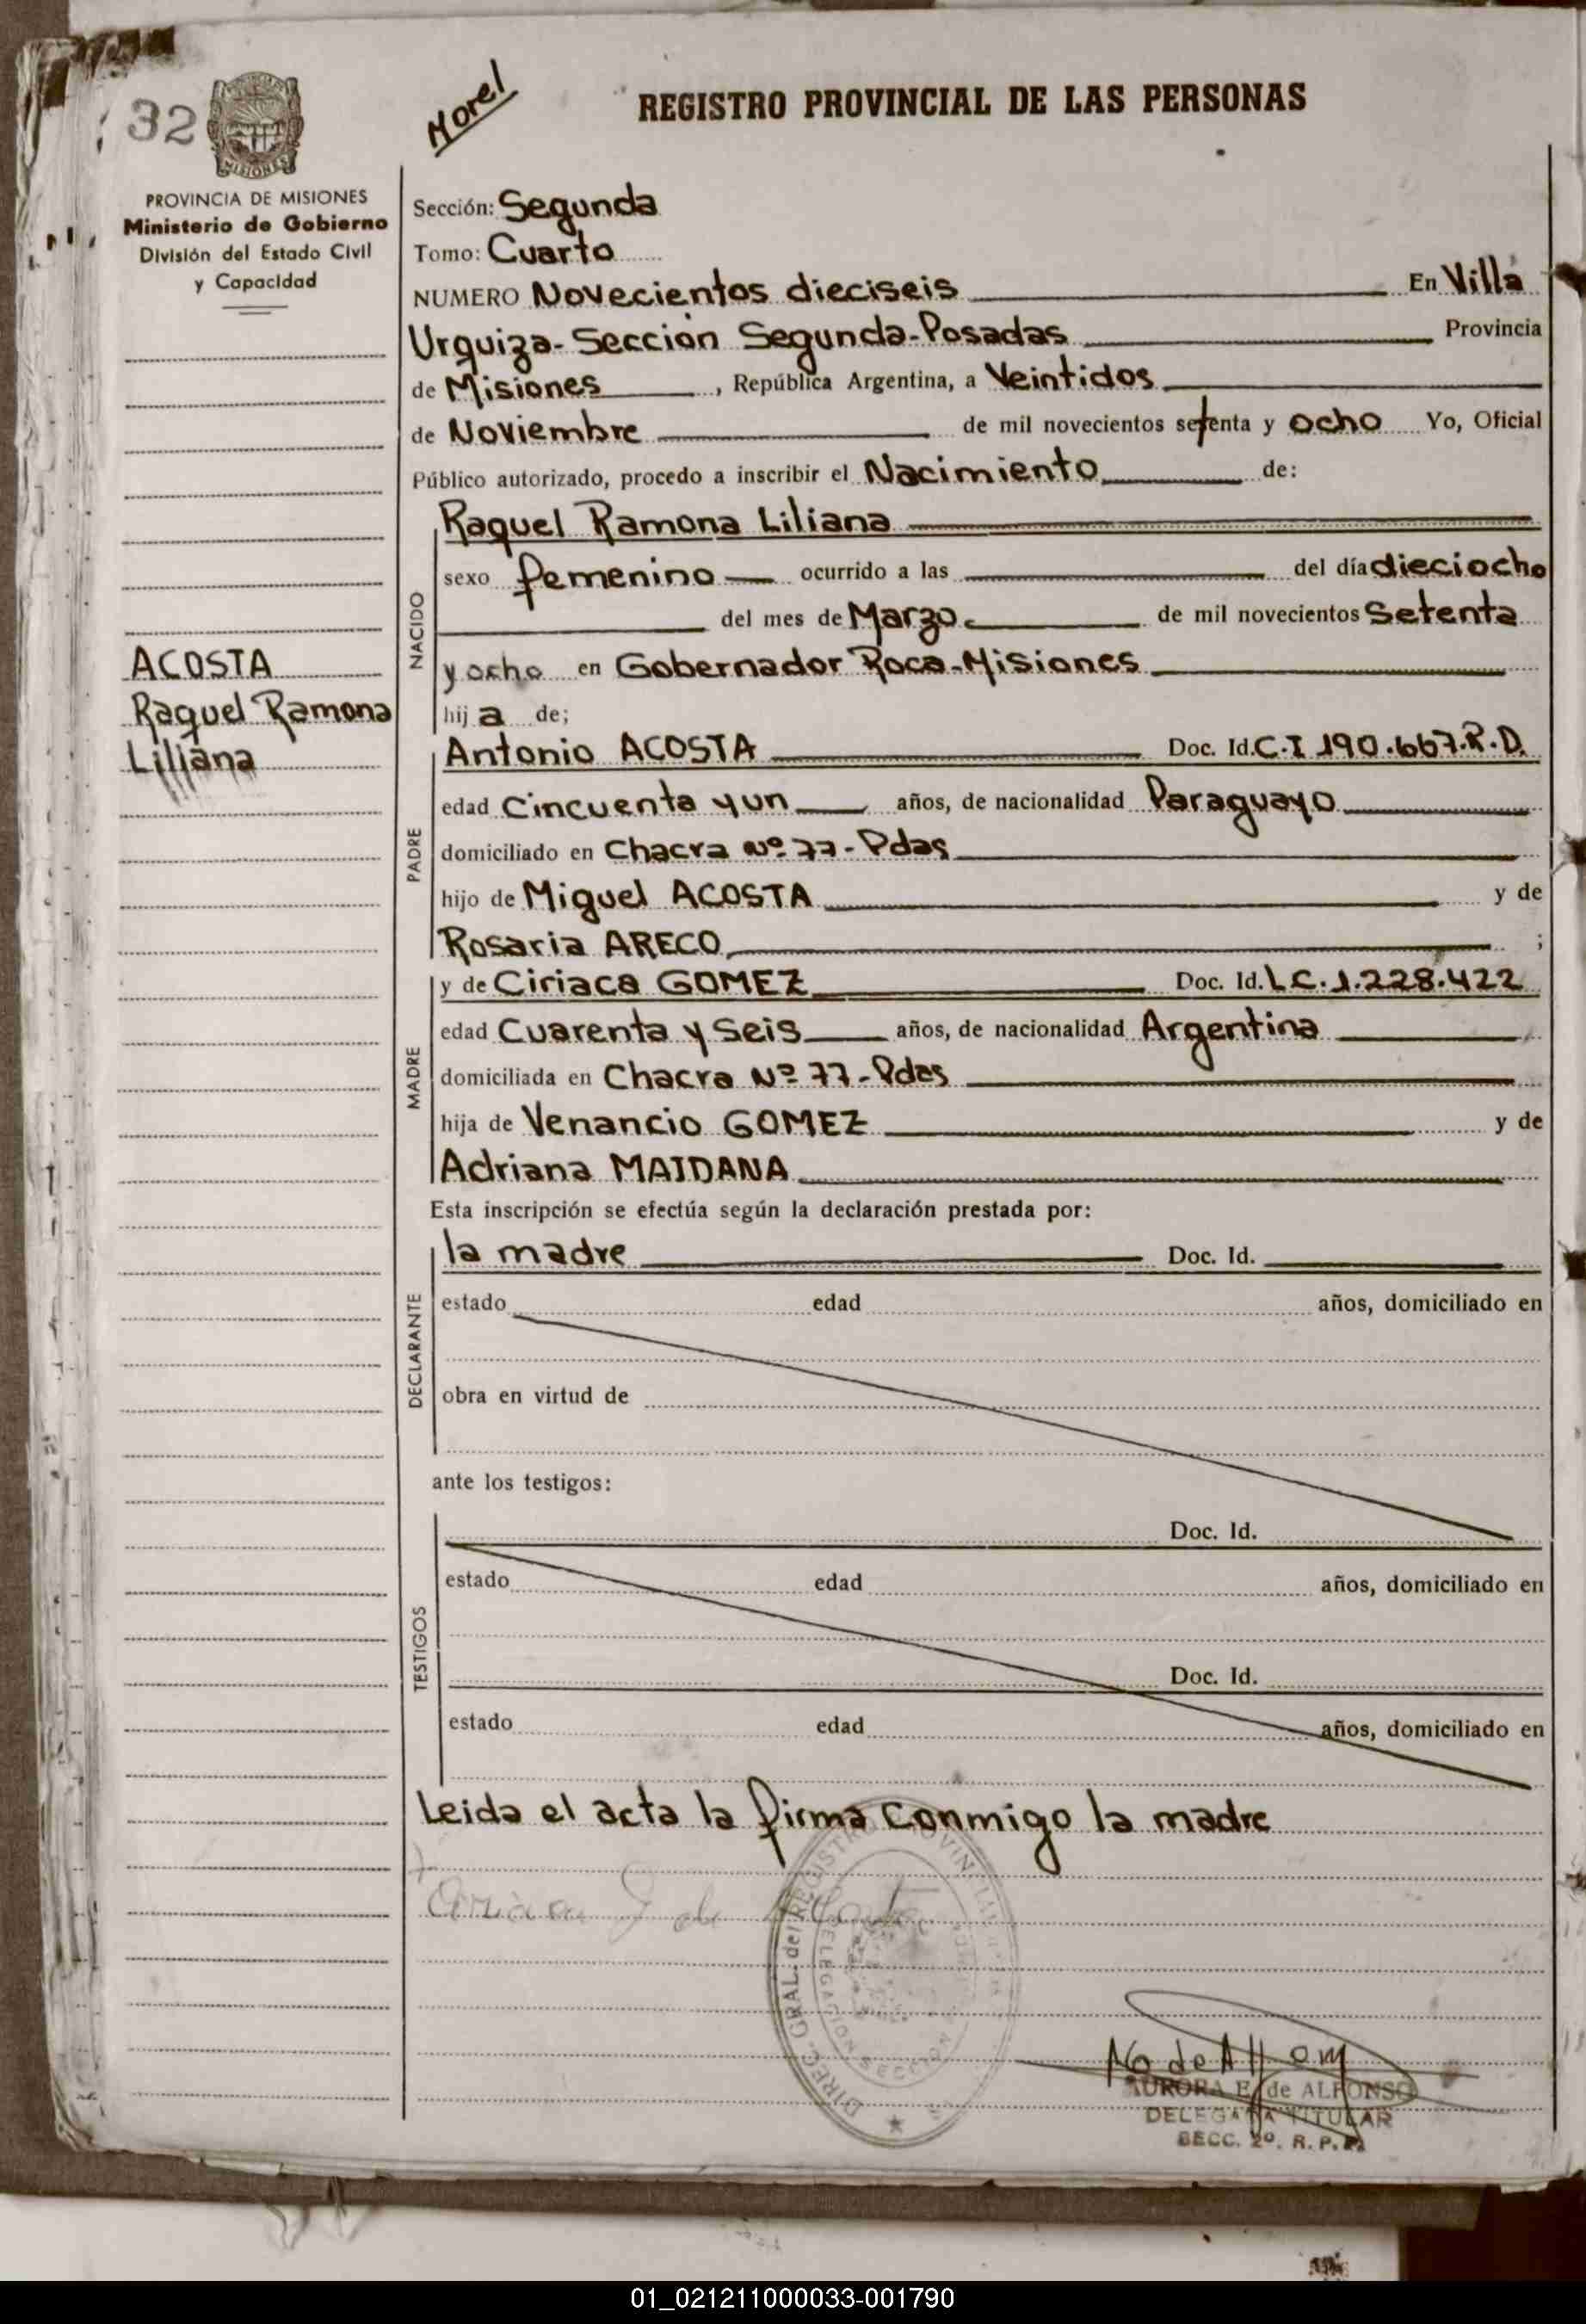 32
Morel
REGISTRO PROVINCIAL DE LAS PERSONAS
MISIONES
PROVINCIA DE MISIONES
Ministerio de Gobierno
División del Estado Civil
y Capacidad
ACOSTA
Raquel Ramona
Liliana
Sección: Segunda
Tomo: Cuarto
NUMERO Novecientos dieciseis En Villa
Urquiza-Sección Segunda-Posadas Provincia
de Misiones, República Argentina, a Veintidos
de Noviembre de mil novecientos setenta y ocho Yo, Oficial
Público autorizado, procedo a inscribir el Nacimiento de:
NACIDO
Raquel Ramona Liliana
sexo femenino ocurrido a las del día dieciocho
del mes de Marzo de mil novecientos Setenta
y ocho en Gobernador Roca-Misiones
hija de;
PADRE
Antonio ACOSTA Doc. Id. C.I 190.667.R.D.
edad Cincuenta y un años, de nacionalidad Paraguayo
domiciliado en Chacra Nº 77-Pdas
hijo de Miguel ACOSTA y de
Rosaria ARECO ;
MADRE
y de Ciriaca GOMEZ Doc. Id. L.C. 1.228.422
edad Cuarenta y Seis años, de nacionalidad Argentina
domiciliada en Chacra Nº 77-Pdas
hija de Venancio GOMEZ y de
Adriana MAIDANA
Esta inscripción se efectúa según la declaración prestada por:
DECLARANTE
la madre Doc. Id.
estado edad años, domiciliado en
obra en virtud de
ante los testigos:
TESTIGOS
Doc. Id.
estado edad años, domiciliado en
Doc. Id.
estado edad años, domiciliado en
Leida el acta la firma conmigo la madre
DIREC. GRAL. del REGISTRO PROVINCIAL
DELEGACION SECCION
AURORA E. de ALFONSO
DELEGADA TITULAR
SECC. 2º. R. P. P.
01_021211000033-001790